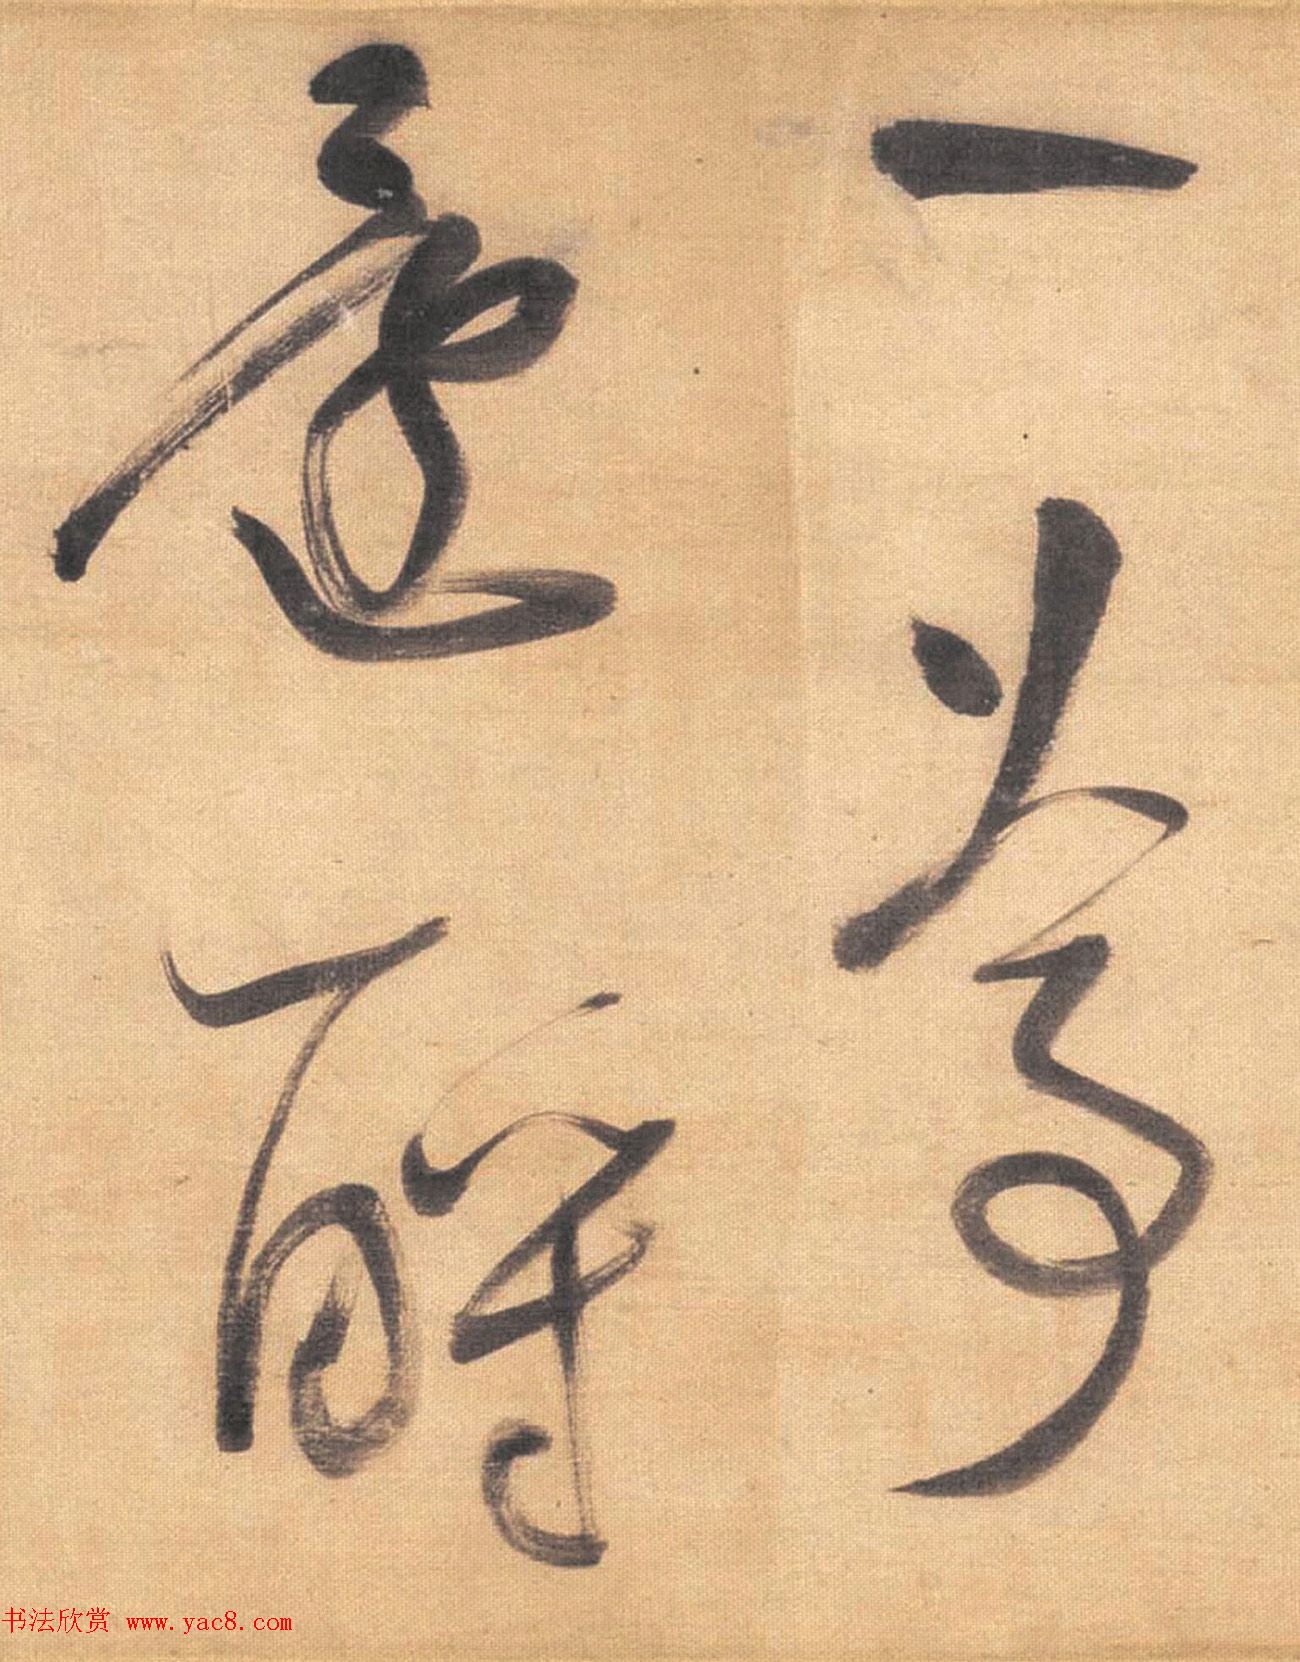 一尊
還酹
书法欣赏 www.yac8.com